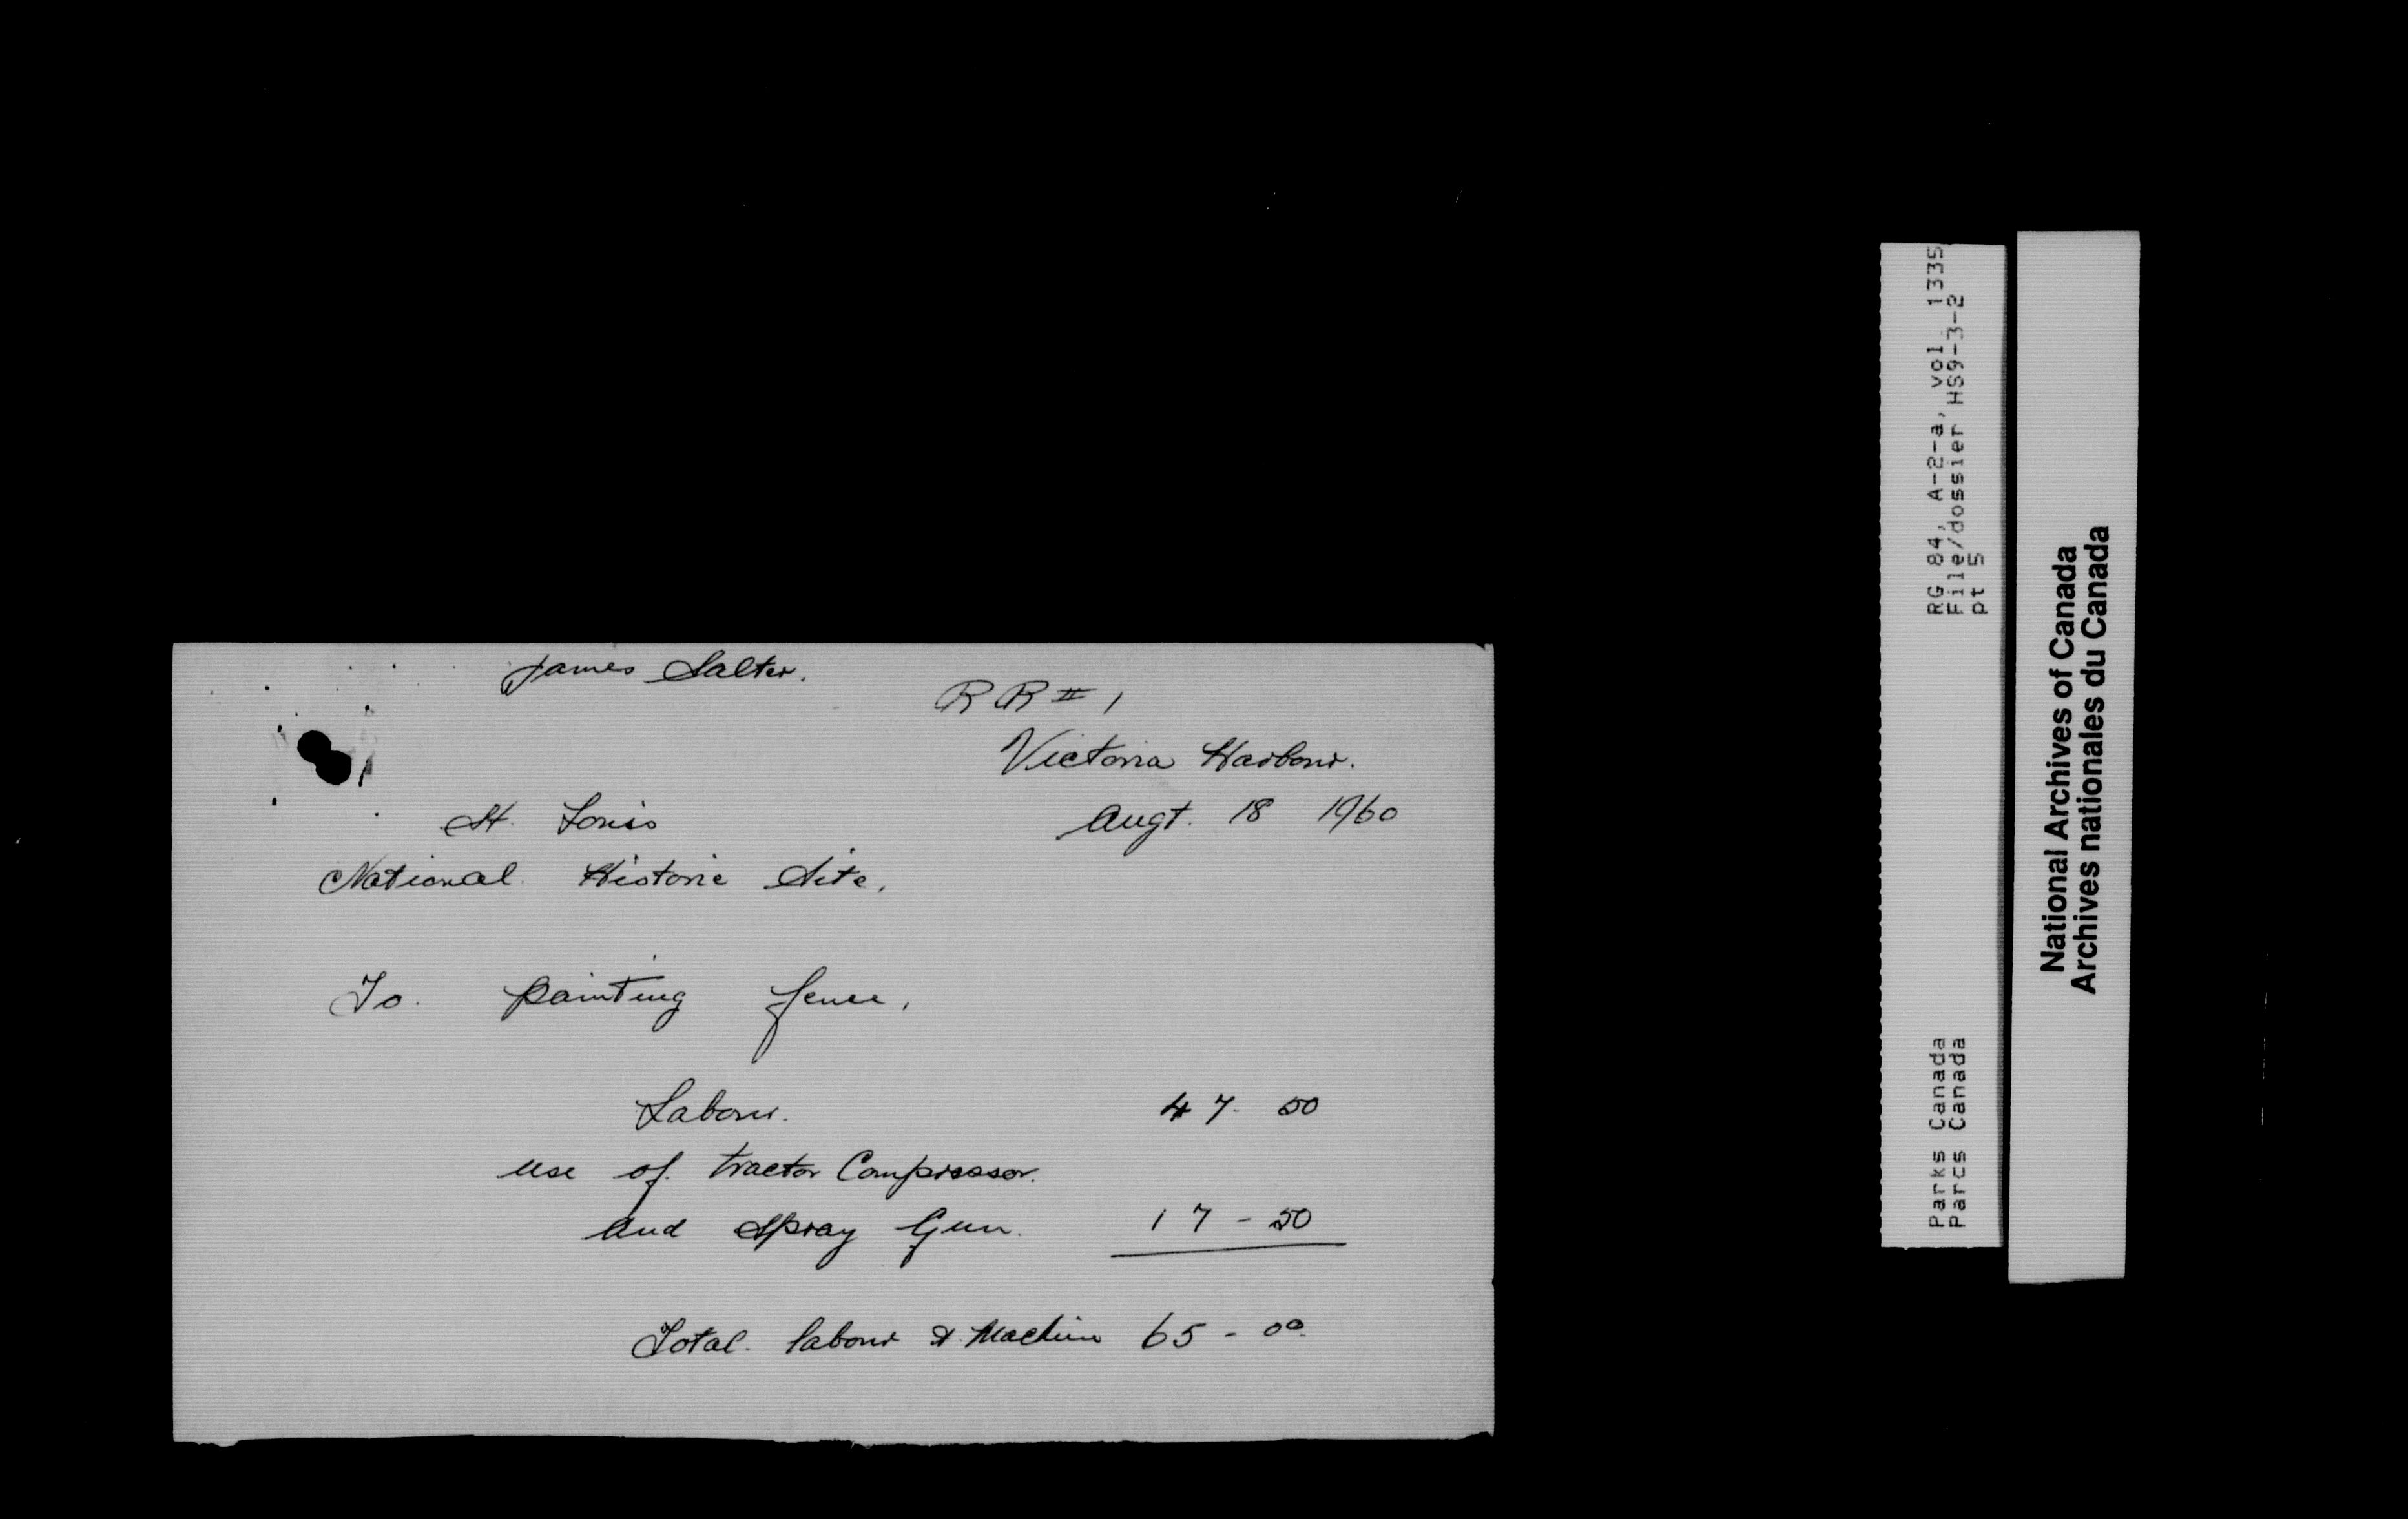 James Salter.
RR # 1
Victoria Harbour.
Augt. 18 1960
St. Louis
National Historic Site.
To painting fence,
Labour. 47. 50
use of tractor Compressor.
and Spray Gun. 17 - 50
Total. labour & Machine 65 - 00
RG 84, A-2-a, vol. 1335
File/dossier HS9-3-2
pt 5
Parks Canada
Parcs Canada
National Archives of Canada
Archives nationales du Canada